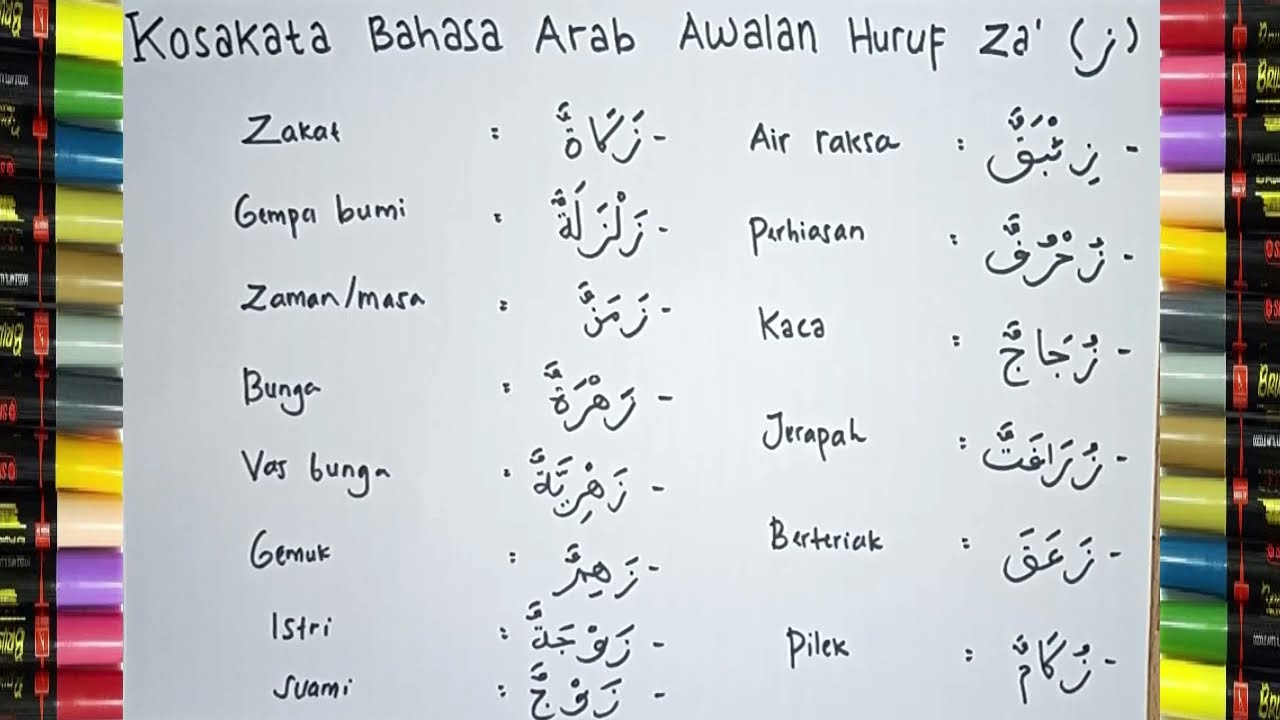 Kosakata Bahasa Arab Awalan Huruf Za' (ز)
Zakat : زَكَاةٌ -
Gempa bumi : زَلْزَلَةٌ -
Zaman/masa : زَمَنٌ -
Bunga : زَهْرَةٌ -
Vas bunga : زَهْرِيَّةٌ -
Gemuk : زَهِمٌ -
Istri : زَوْجَةٌ -
Suami : زَوْجٌ -
Air raksa : زِئْبَقٌ -
Perhiasan : زُخْرُفٌ -
Kaca : زُجَاجٌ -
Jerapah : زُرَافَةٌ -
Berteriak : زَعَقَ -
Pilek : زُكَامٌ -